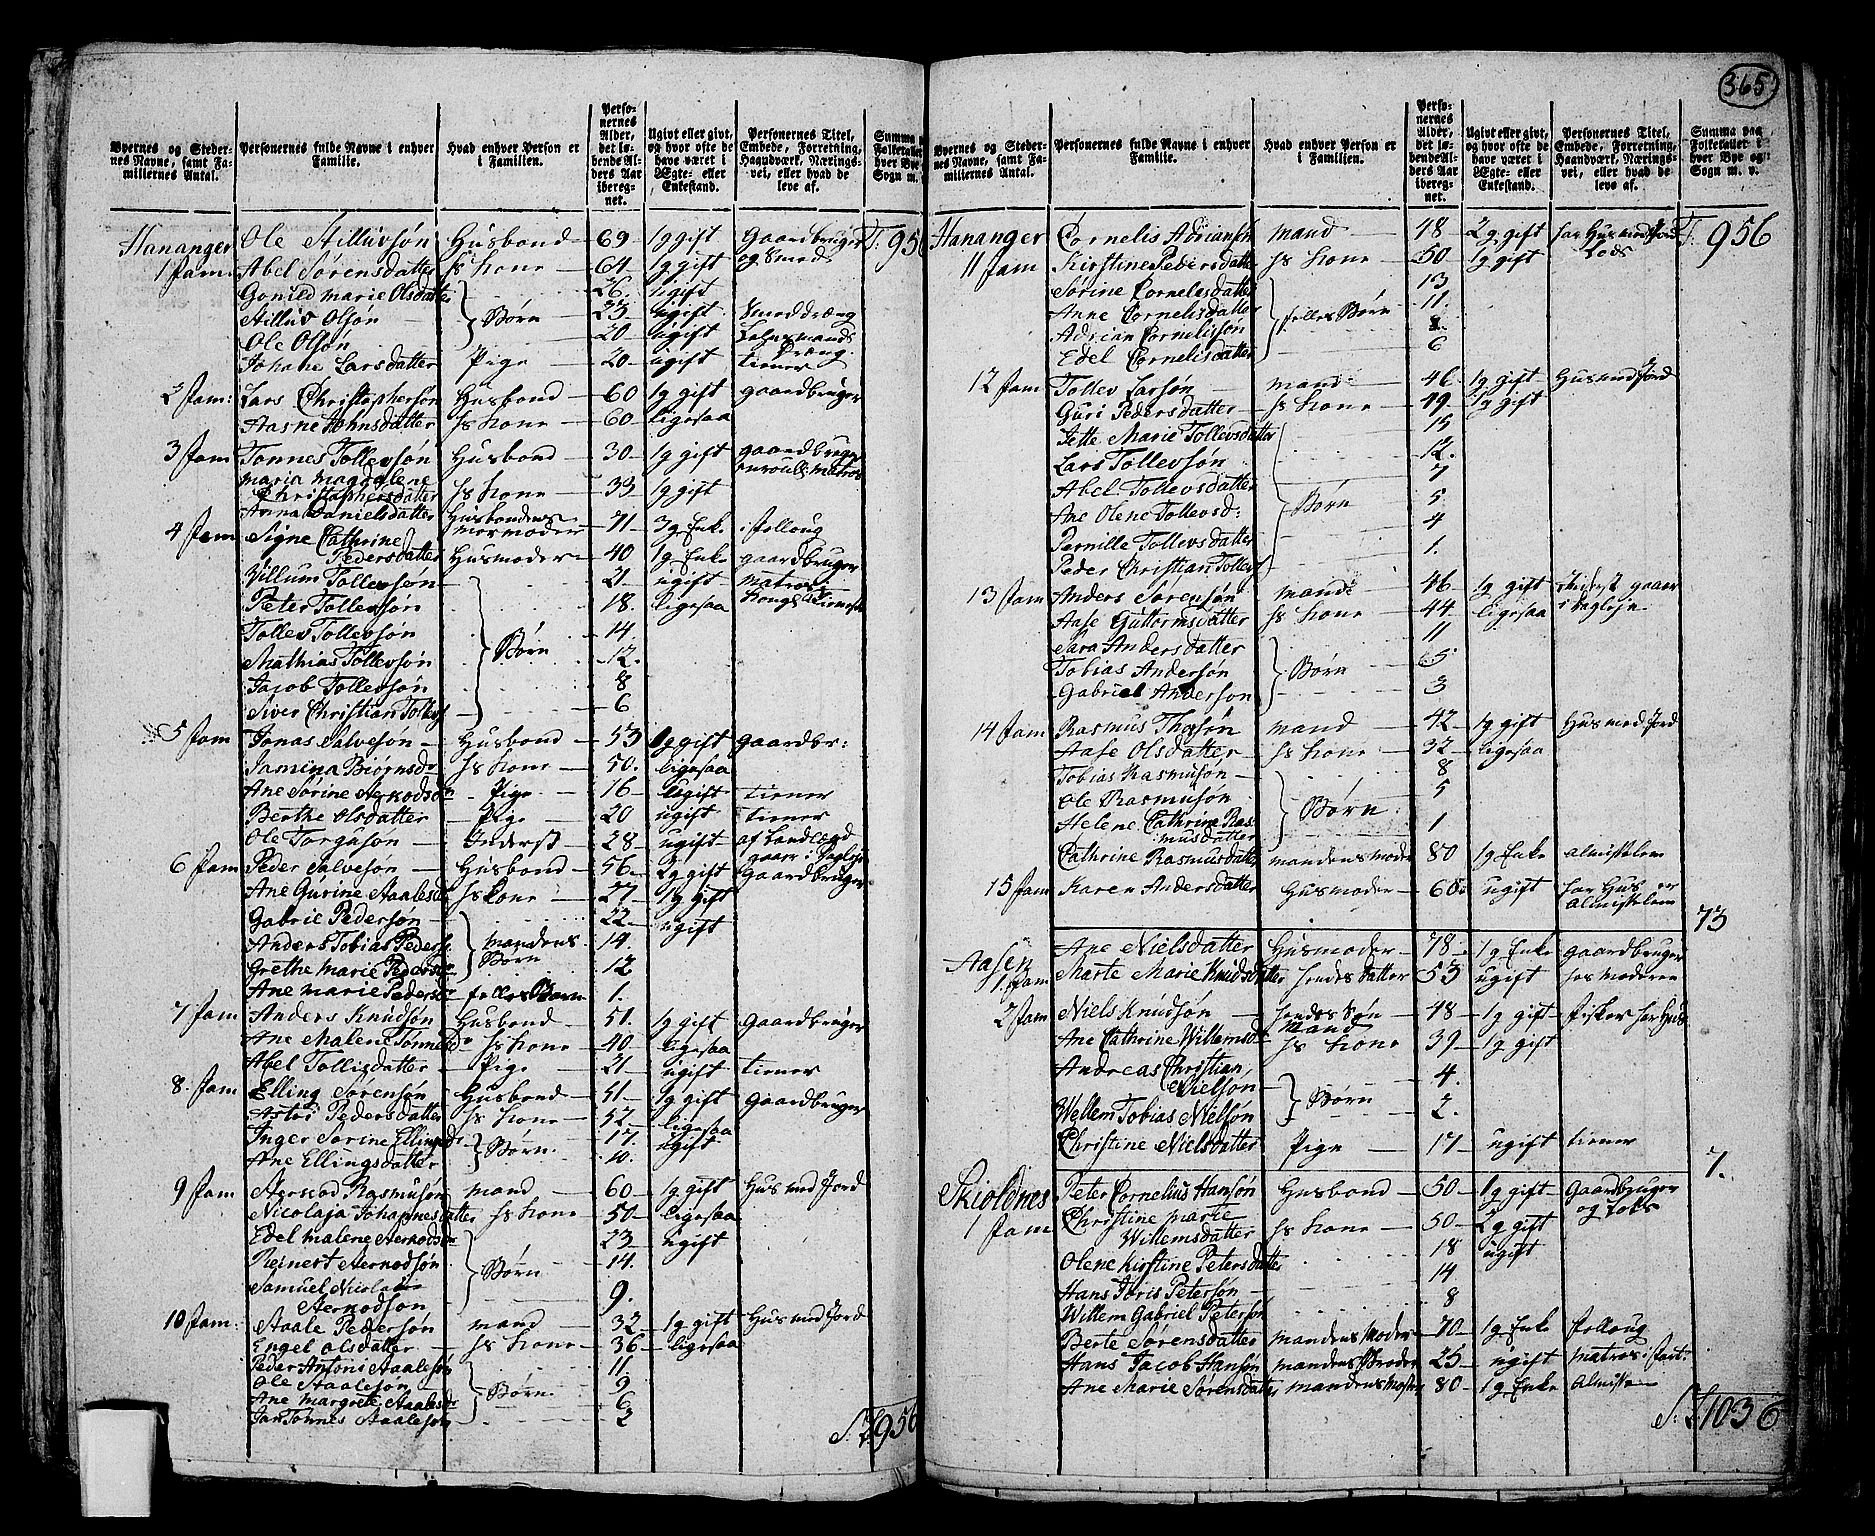 365
Byernes og Stedernes Navne, samt Familiernes Antal.
Personernes fulde Navne i enhver Familie.
Hvad enhver Person er i Familien.
Personernes Alder, det løbende Alders Aar iberegnet.
Ugivt eller givt, og hvor ofte de have været i Ægte- eller Enkestand.
Personernes Titel, Embede, Forretning, Haandværk, Næringsvei, eller hvad de leve af.
Summa
Hananger Ole Stilluvsøn Husbond 69 1 g gift Gaardbruger T: 956
1 Fam: Abel Sørensdatter hs Kone 64 1 g gift og Smed
Gonild Marie Olsdatter 26 ugift
Stilluv Olsøn Børn 23 ugift Smeddræng
Ole Olsøn 20 ugift
Johane Larsdatter Pige 20 ugift tiener
2 Fam: Lars Christophersøn Husbond 60 1 g gift gaardbruger
Aasne Johnsdatter hs Kone 60 ligesaa
3 Fam Tonnes Tollevsøn Husbond 30 1 g gift gaardbruger
Maria Magdalene
Christophersdatter hs Kone 33 1 g gift
Anna Danielsdatter Husbondens mormoder 71 3 g Enke
4 Fam Signe Cathrine
Pedersdatter Husmoder 40 1 g Enke gaardbruger
Villum Tollevsøn 21 ugift matros i
Peter Tollevsøn 18 ligesaa Kongs Tieneste
Tollev Tollevsøn 14
Mathias Tollevsøn Børn 12
Jacob Tollevsøn 8
Siver Christian Tollevs 6
5 Fam Jonas Salvesøn Husbond 53 1 g gift gaardbr:
Jamina Biørnsdr hs Kone 50 ligesaa
Ane Sørine Aerkodsdr Pige 16 ugift tiener
Berthe Olsdatter Pige 20 ugift tiener
Ole Torgusøn Inderst 28 ugift
6 Fam Peder Salvesøn Husbond 56 2 g gift Gaardbruger
Ane Gurine Aaalesdr hs Kone 27 1 g gift
Gabriel Pedersøn 22 ugift
Anders Tobias Peders mandens 14
Grethe Marie Pedersdr Børn 12
Ane Marie Pedersdr felles Barn 1
7 Fam Anders Knudsøn Husbond 51 1 g gift Gaardbruger
Ane Malene Tønnesdr hs Kone 40 ligesaa
Abel Tollisdatter Pige 21 ugift tiener
8 Fam Elling Sørensøn Husbond 51 1 g gift Gaardbruger
Astri Pedersdatter hs Kone 52 ligesaa
Inger Sørine Ellingsdr Børn 17 ugift
Ane Ellingsdatter 10
9 Fam Aerkod Rasmusøn mand 60 1 g gift Hus med Jord
Nicolaja Johannesdatter hs Kone 50 ligesaa
Edel Malene Aerkodsdr 23 ugift
Reinert Aerkodsøn Børn 14
Samuel Nicolai
Aerkodsøn 9
10 Fam: Aaale Pedersøn mand 32 1 g gift Hus med Jord
Engel Olsdatter hs Kone 36 ligesaa
Peder Antoni Aaalesøn 11
Ole Aaalesøn Børn 9
Ane Margrete Aaalesdr 6
Jan Tønnes Aaalesøn 2
S: 956
Byernes og Stedernes Navne, samt Familiernes Antal.
Personernes fulde Navne i enhver Familie.
Hvad enhver Person er i Familien.
Personernes Alder, det løbende Alders Aar iberegnet.
Ugivt eller givt, og hvor ofte de have været i Ægte- eller Enkestand.
Personernes Titel, Embede, Forretning, Haandværk, Næringsvei, eller hvad de leve af.
Summa paa Folketallet i hver Bye og Sogn m. v.
Hananger Cornelis Adriansøn mand 48 2 g gift har Hus med Jord T: 956
11 Fam Kirstine Pedersdatter hs Kone 50 1 g gift Lods
Sørine Cornelisdatter 13
Anne Cornelisdatter felles Børn 11
Adrian Cornelisøn
Edel Cornelisdatter 6
12 Fam Tollev Larsøn mand 46 1 g gift Hus med Jord
Guri Pedersdatter hs Kone 49 1 g gift
Jette Marie Tollevsdatter 15
Lars Tollevsøn 12
Abel Tollevsdatter 7
Ane Olene Tollevsd: Børn 5
Pernille Tollevsdatter 4
Peder Christian Tollevs 1
13 Fam Anders Sørensøn mand 46 1 g gift
Aase Guttormsdatter hs Kone 44 ligesaa
Sara Andersdatter 11
Tobias Andersøn Børn 5
Gabriel Andersøn 3
14 Fam Rasmus Thosøn mand 42 1 g gift Hus med Jord
Aase Olsdatter hs Kone 32 ligesaa
Tobias Rasmusøn 8
Ole Rasmusøn Børn 5
Helene Cathrine Rasmusdatter 1
Cathrine Rasmusdatter mandens moder 80 1 g Enke almisselem
15 Fam Karen Andersdatter Husmoder 60 ugift har Hus er Almisselem
73
Aasen Ane Nielsdatter Husmoder 78 1 g Enke gaardbruger
1 Fam Marte Marie Knudsdatter hendes datter 53 ugift hos moderen
2 Fam Niels Knudsøn hendes Søn Mand 48 1 g gift fisker har Hus
Ane Cathrine Willemsd hs Kone 39 1 g gift
Andreas Christian
Nielsøn Børn 4
Wellem Tobias Nielsøn 2
Christine Nielsdatter Pige 17 ugift tiener
7.
Skioldnes Peter Cornelius Hansøn Husbond 50 1 g gift Gaardbruger
1 Fam Christine Marie og Lods
Willemsdatter hs Kone 50 2 g gift
Olene Kirstine Petersdatter 18 ugift
Hans Joris Petersøn 14
Willem Gabriel Petersøn 8
Berte Sørensdatter mandens Moder 70 1 g Enke
Hans Jacob Hansøn mandens Broder 25 ugift
Ane Marie Sørensdatter mandens Moster 80 1 g Enke
S: 1036